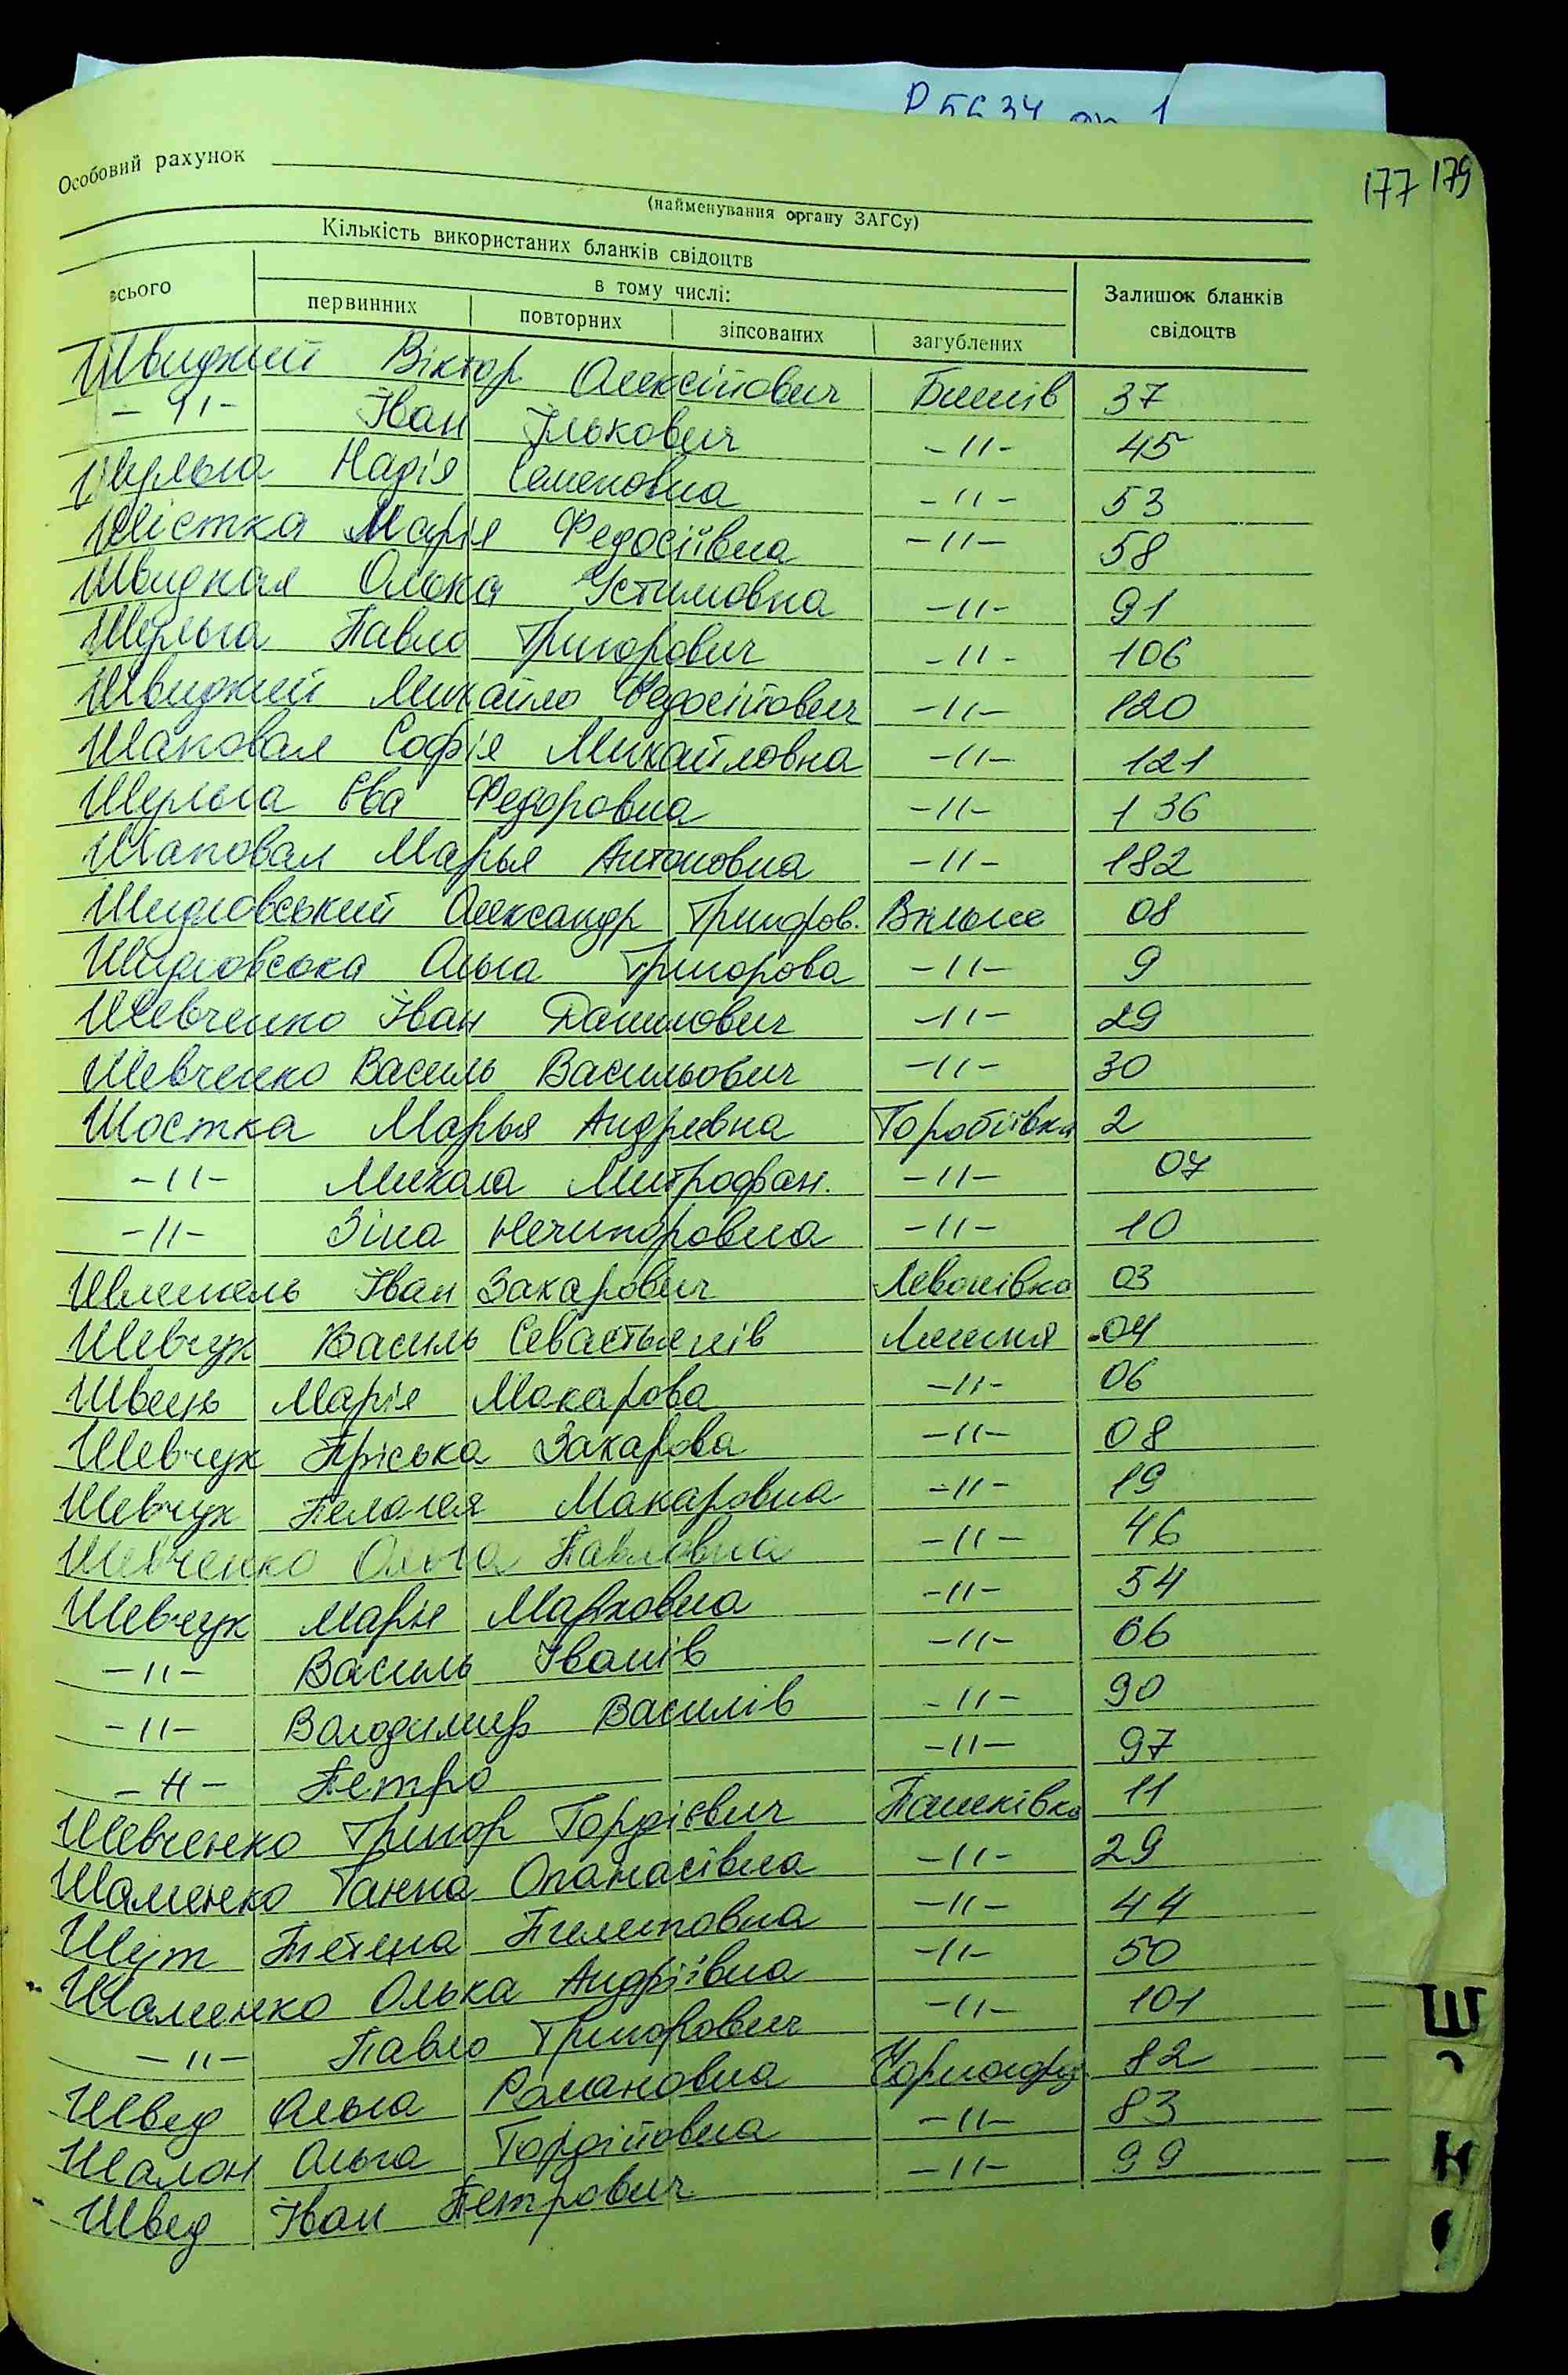 Р 5634 оп 1
177 179
Особовий рахунок
(найменування органу ЗАГСу)
Кількість використаних бланків свідоцтв
всього
в тому числі:
первинних повторних зіпсованих загублених
Залишок бланків свідоцтв
Швидкий Віктор Олексійович Бишів 37
-〃- Іван Ількович -〃- 45
Шульга Надія Семеновна -〃- 53
Шістка Марія Федосіївна -〃- 58
Швидкая Олька Устимовна -〃- 91
Шульга Павло Григорович -〃- 106
Швидкий Михайло Федосійович -〃- 120
Шаповал Софія Михайловна -〃- 121
Шульга Єва Федоровна -〃- 136
Шаповал Марья Антоновна -〃- 182
Шидловський Олександр Григоров. Вільне 08
Шидловська Ольга Григорова -〃- 9
Шевченко Іван Данилович -〃- 29
Шевченко Василь Васильович -〃- 30
Шостка Марья Андреевна Горобіївка 2
-〃- Микола Митрофан. -〃- 07
-〃- Зіна Нечипоровна -〃- 10
Іван Захарович Леонівка 03
Шевчук Василь Севастьянів Лишня 04
Швець Марія Макарова -〃- 06
Шевчук Пріська Захарова -〃- 08
Шевчук Пелагея Макаровна -〃- 19
Шевченко Ольга Павловна -〃- 46
Шевчук Марія Марковна -〃- 54
-〃- Василь Іванів -〃- 66
-〃- Володимир Василів -〃- 90
-〃- Петро -〃- 97
Шевченко Григор Гордієвич Пашківка 11
Шаменко Ганна Опанасівна -〃- 29
Шут Тетяна Пилиповна -〃- 44
Шаменко Олька Андріївна -〃- 50
-〃- Павло Григорович -〃- 101
Швед Ольга Романовна 82
Шалон Ольга Гордійовна -〃- 83
Швед Іван Петрович -〃- 99
Ш